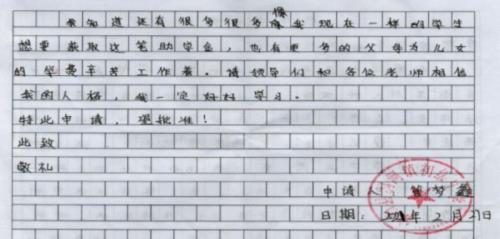 我知道还有很多很多像我现在一样的学生
想要获取这笔助学金，也有更多的父母为儿女
的学费辛苦工作着。请领导们和各位老师相信
我的人格，我一定好好学习。
特此申请，望批准！
此致
敬礼
申请
日期：2021年2月27日